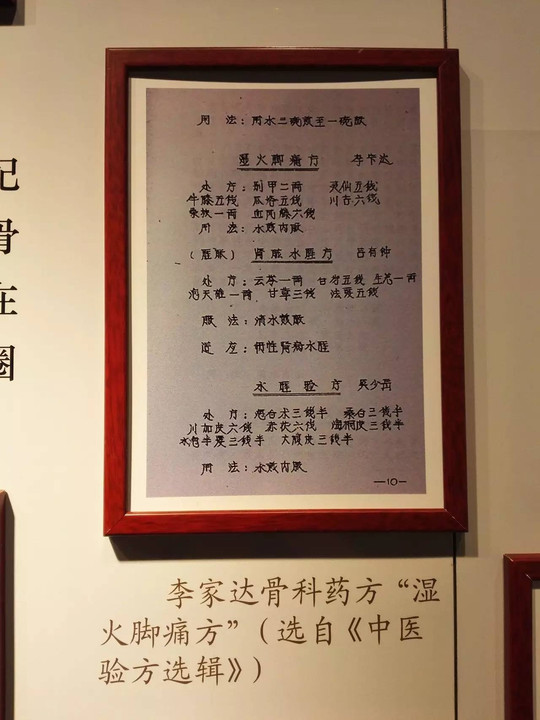 记
骨
在
圈
用 法：用水三碗煎至一碗服
湿火脚痛方 李家达
处 方：别甲二两 灵仙五钱
牛膝五钱 瓜蒌五钱 川古六钱
桑枝一两 血丙藤六钱
用 法：水煎内服
水肿方 吕有钟
处 方：云苓一两 甘 五钱 生芪一两
泡天雄一两 甘草三钱 法夏五钱
服法：清水煎服
适应：慢性肾病水肿
水肿验方 吴少南
处 方：炮白术三钱半 桑白三钱半
川加皮六钱 赤茯六钱 海桐皮三钱半
水包半夏三钱半 大腹皮三钱半
用 法：水煎内服
—10—
李家达骨科药方“湿
火脚痛方”（选自《中医
验方选辑》）